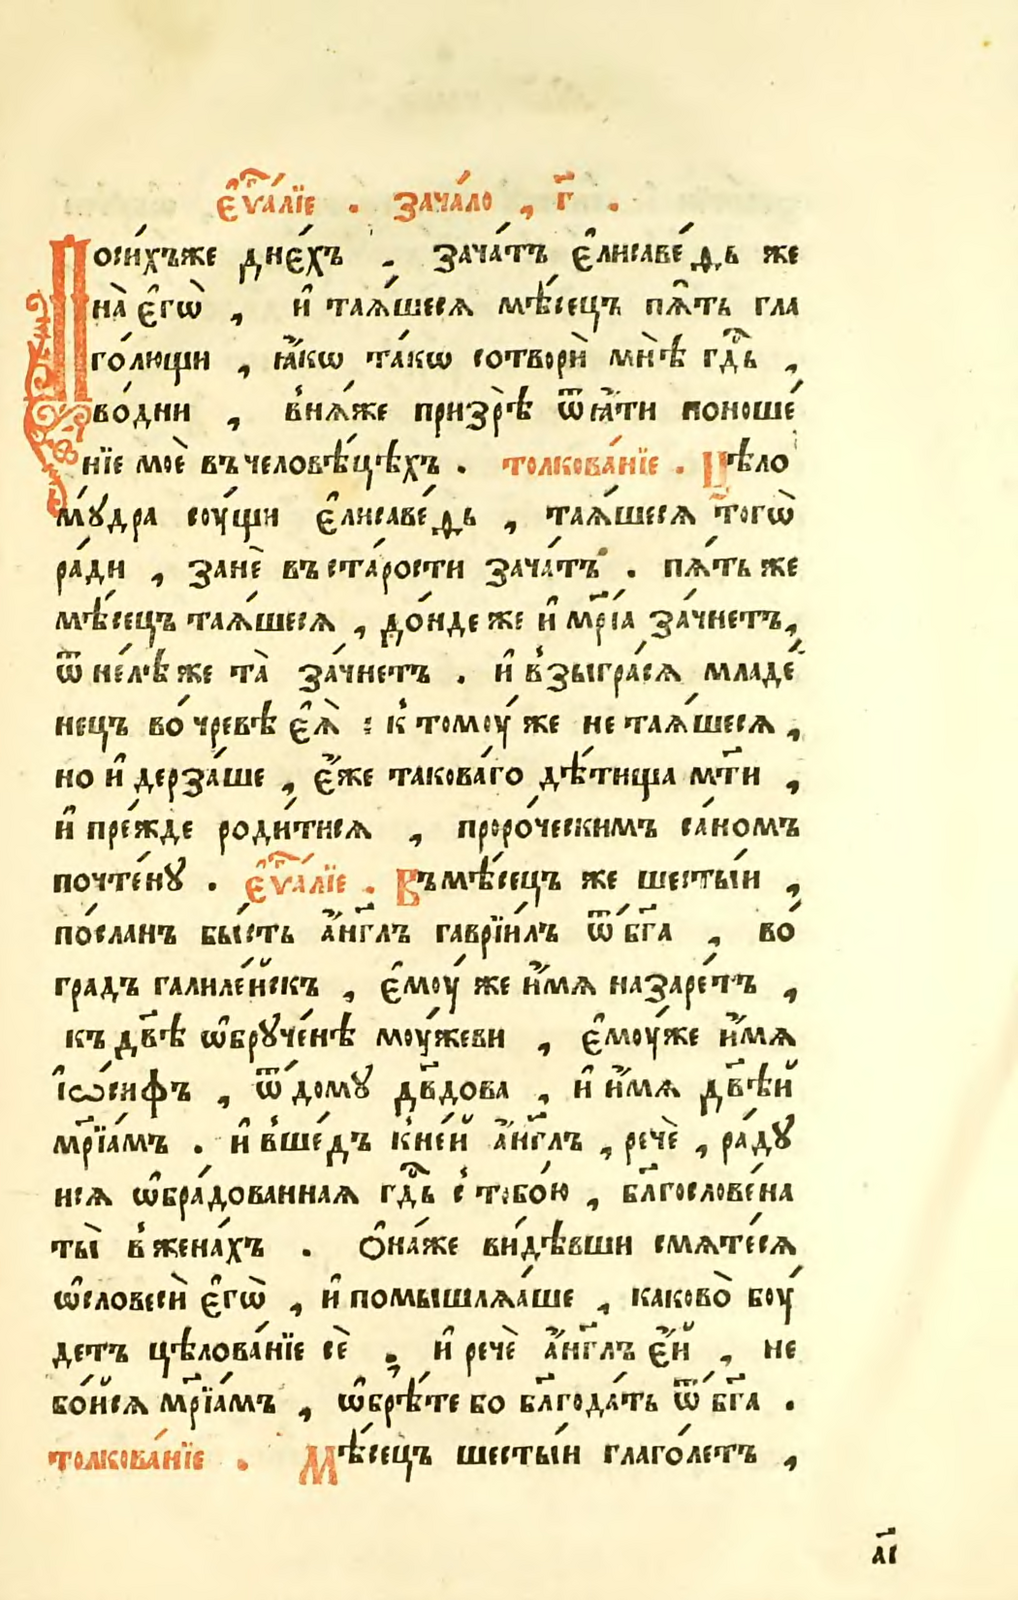 Є҆ѵⷢ҇а́лїе . зача́ло , г҃ .
По си́хъ же дне́хъ . зача́тъ є҆лисаве́ѳь же
на̀ є҆гѡ̀ , и҆ таѧ́шесѧ мѣ́сецъ пѧ̑ть гла
го́лющи , ꙗ҆́кѡ та́кѡ сотворѝ мнѣ̀ гдⷭ҇ь ,
во́дни , в̾нѧ́же призрѣ̀ ѿꙗ́ти поноше́
нїе моѐ въ человѣ́цѣхъ . толкова́нїе . Цѣ́ло
мꙋ́дра соу́щи є҆лисаве́ѳь , таѧ́шесѧ тогѡ̀
ра́ди , занѐ въ ста́рости зача́тъ . пѧ́ть же
мѣ́сецъ таѧ́шесѧ , до́нде же и҆ мр҃і́а за́чнетъ ,
ѿ не́лѣ же та̀ за́чнетъ . и҆ в̾зыгра́сѧ младе́
нецъ во́ чревѣ є҆ѧ̀ : к̾ томоу́ же не таѧ́шесѧ ,
но и҆ дерза́ше , є҆́же такова́го дѣ́тища мт҃и ,
и҆ пре́жде роди́тисѧ , проро́ческимъ са́номъ
почте́нꙋ . Є҆ѵⷢ҇а́лїе . Въ мѣ́сецъ же шесты́и ,
по́сланъ бы́сть а҆́нг҃лъ гаврїи́лъ ѿ бг҃а , во́
градъ галиле́йскъ , є҆моу́ же и҆́мѧ назаре́тъ ,
къ дв҃ѣ ѡ҆брꙋче́нѣ моу́жеви , є҆моу́же и҆́мѧ
і҆ѡ́сифъ , ѿ до́мꙋ дв҃дова , и҆ и҆́мѧ дв҃ѣй
мр҃їа́мъ . и҆ в̾ше́дъ к̾не́й а҆́нг҃лъ , речѐ , ра́дꙋ
исѧ ѡ҆бра́дованнаѧ гдⷭ҇ь с̾ тобо́ю , бл҃гослове́на
ты̀ в̾ жена́хъ . Ѻ҆на́же ви́дѣвши смѧте́сѧ
ѡ҆словесѝ є҆гѡ̀ , и҆ помышлѧ́аше , каково̀ боу́
детъ цѣлова́нїе сѐ . и҆ речѐ а҆́нг҃лъ є҆́й , не
бо́йсѧ мр҃їа́мъ , ѡ҆брѣ́те бо бл҃года́ть ѿ бг҃а .
толкова́нїе . Мѣ́сецъ шесты́и глаго́летъ ,
а҃і